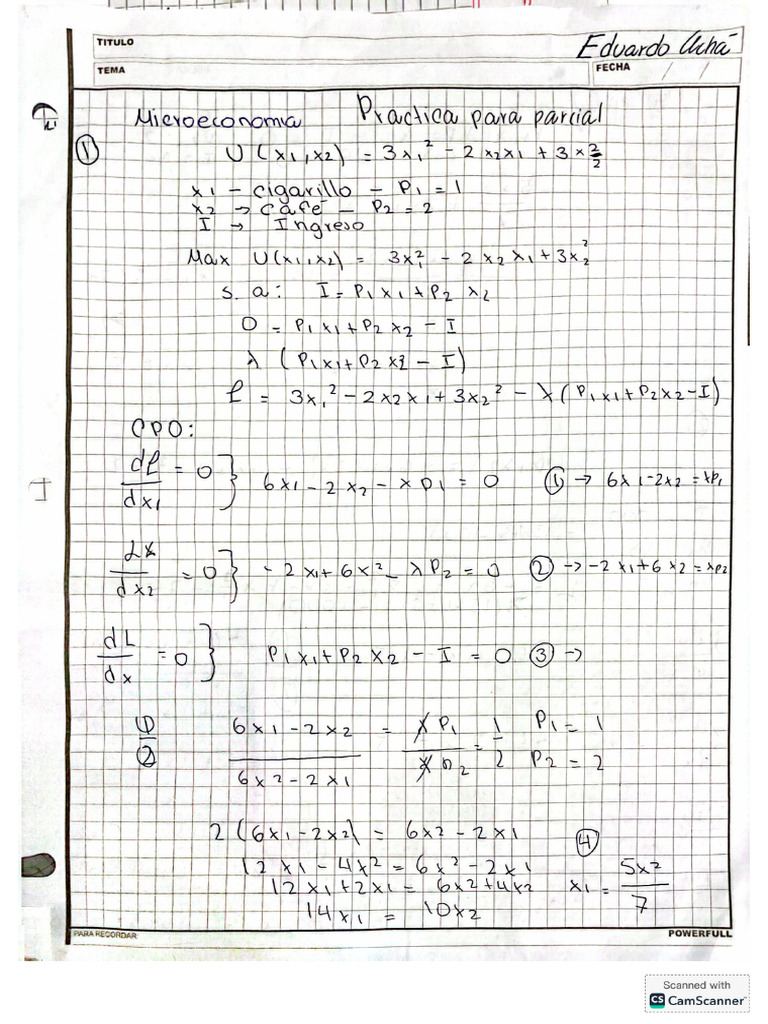 TITULO
Eduardo Achá
TEMA
FECHA / /
Microeconomia Practica para parcial
① U (x1, x2) = 3x₁² - 2x₂x₁ + 3x₂²
x1 - cigarillo - P1 = 1
x2 → café - P2 = 2
I → Ingreso
Max U(x1, x2) = 3x₁² - 2x₂x₁ + 3x₂²
s. a: I = P₁x₁ + P₂x₂
0 = P₁x₁ + P₂x₂ - I
λ (P₁x₁ + P₂x₂ - I)
ℓ = 3x₁² - 2x₂x₁ + 3x₂² - λ(P₁x₁ + P₂x₂ - I)
CPO:
dℓ/dx1 = 0 } 6x1 - 2x2 - λP1 = 0 ① → 6x1 - 2x2 = λP1
dℓ/dx2 = 0 } - 2x1 + 6x2 - λP2 = 0 ② → -2x1 + 6x2 = λP2
dL/dλ = 0 } P1x1 + P2x2 - I = 0 ③ →
①/② (6x1 - 2x2)/(6x2 - 2x1) = λP1/λP2 = 1/2 P1 = 1
P2 = 2
2(6x1 - 2x2) = 6x2 - 2x1 ④
12x1 - 4x2 = 6x2 - 2x1
12x1 + 2x1 = 6x2 + 4x2 x1 = 5x2/7
14x1 = 10x2
PARA RECORDAR
POWERFULL
Scanned with
CS CamScanner